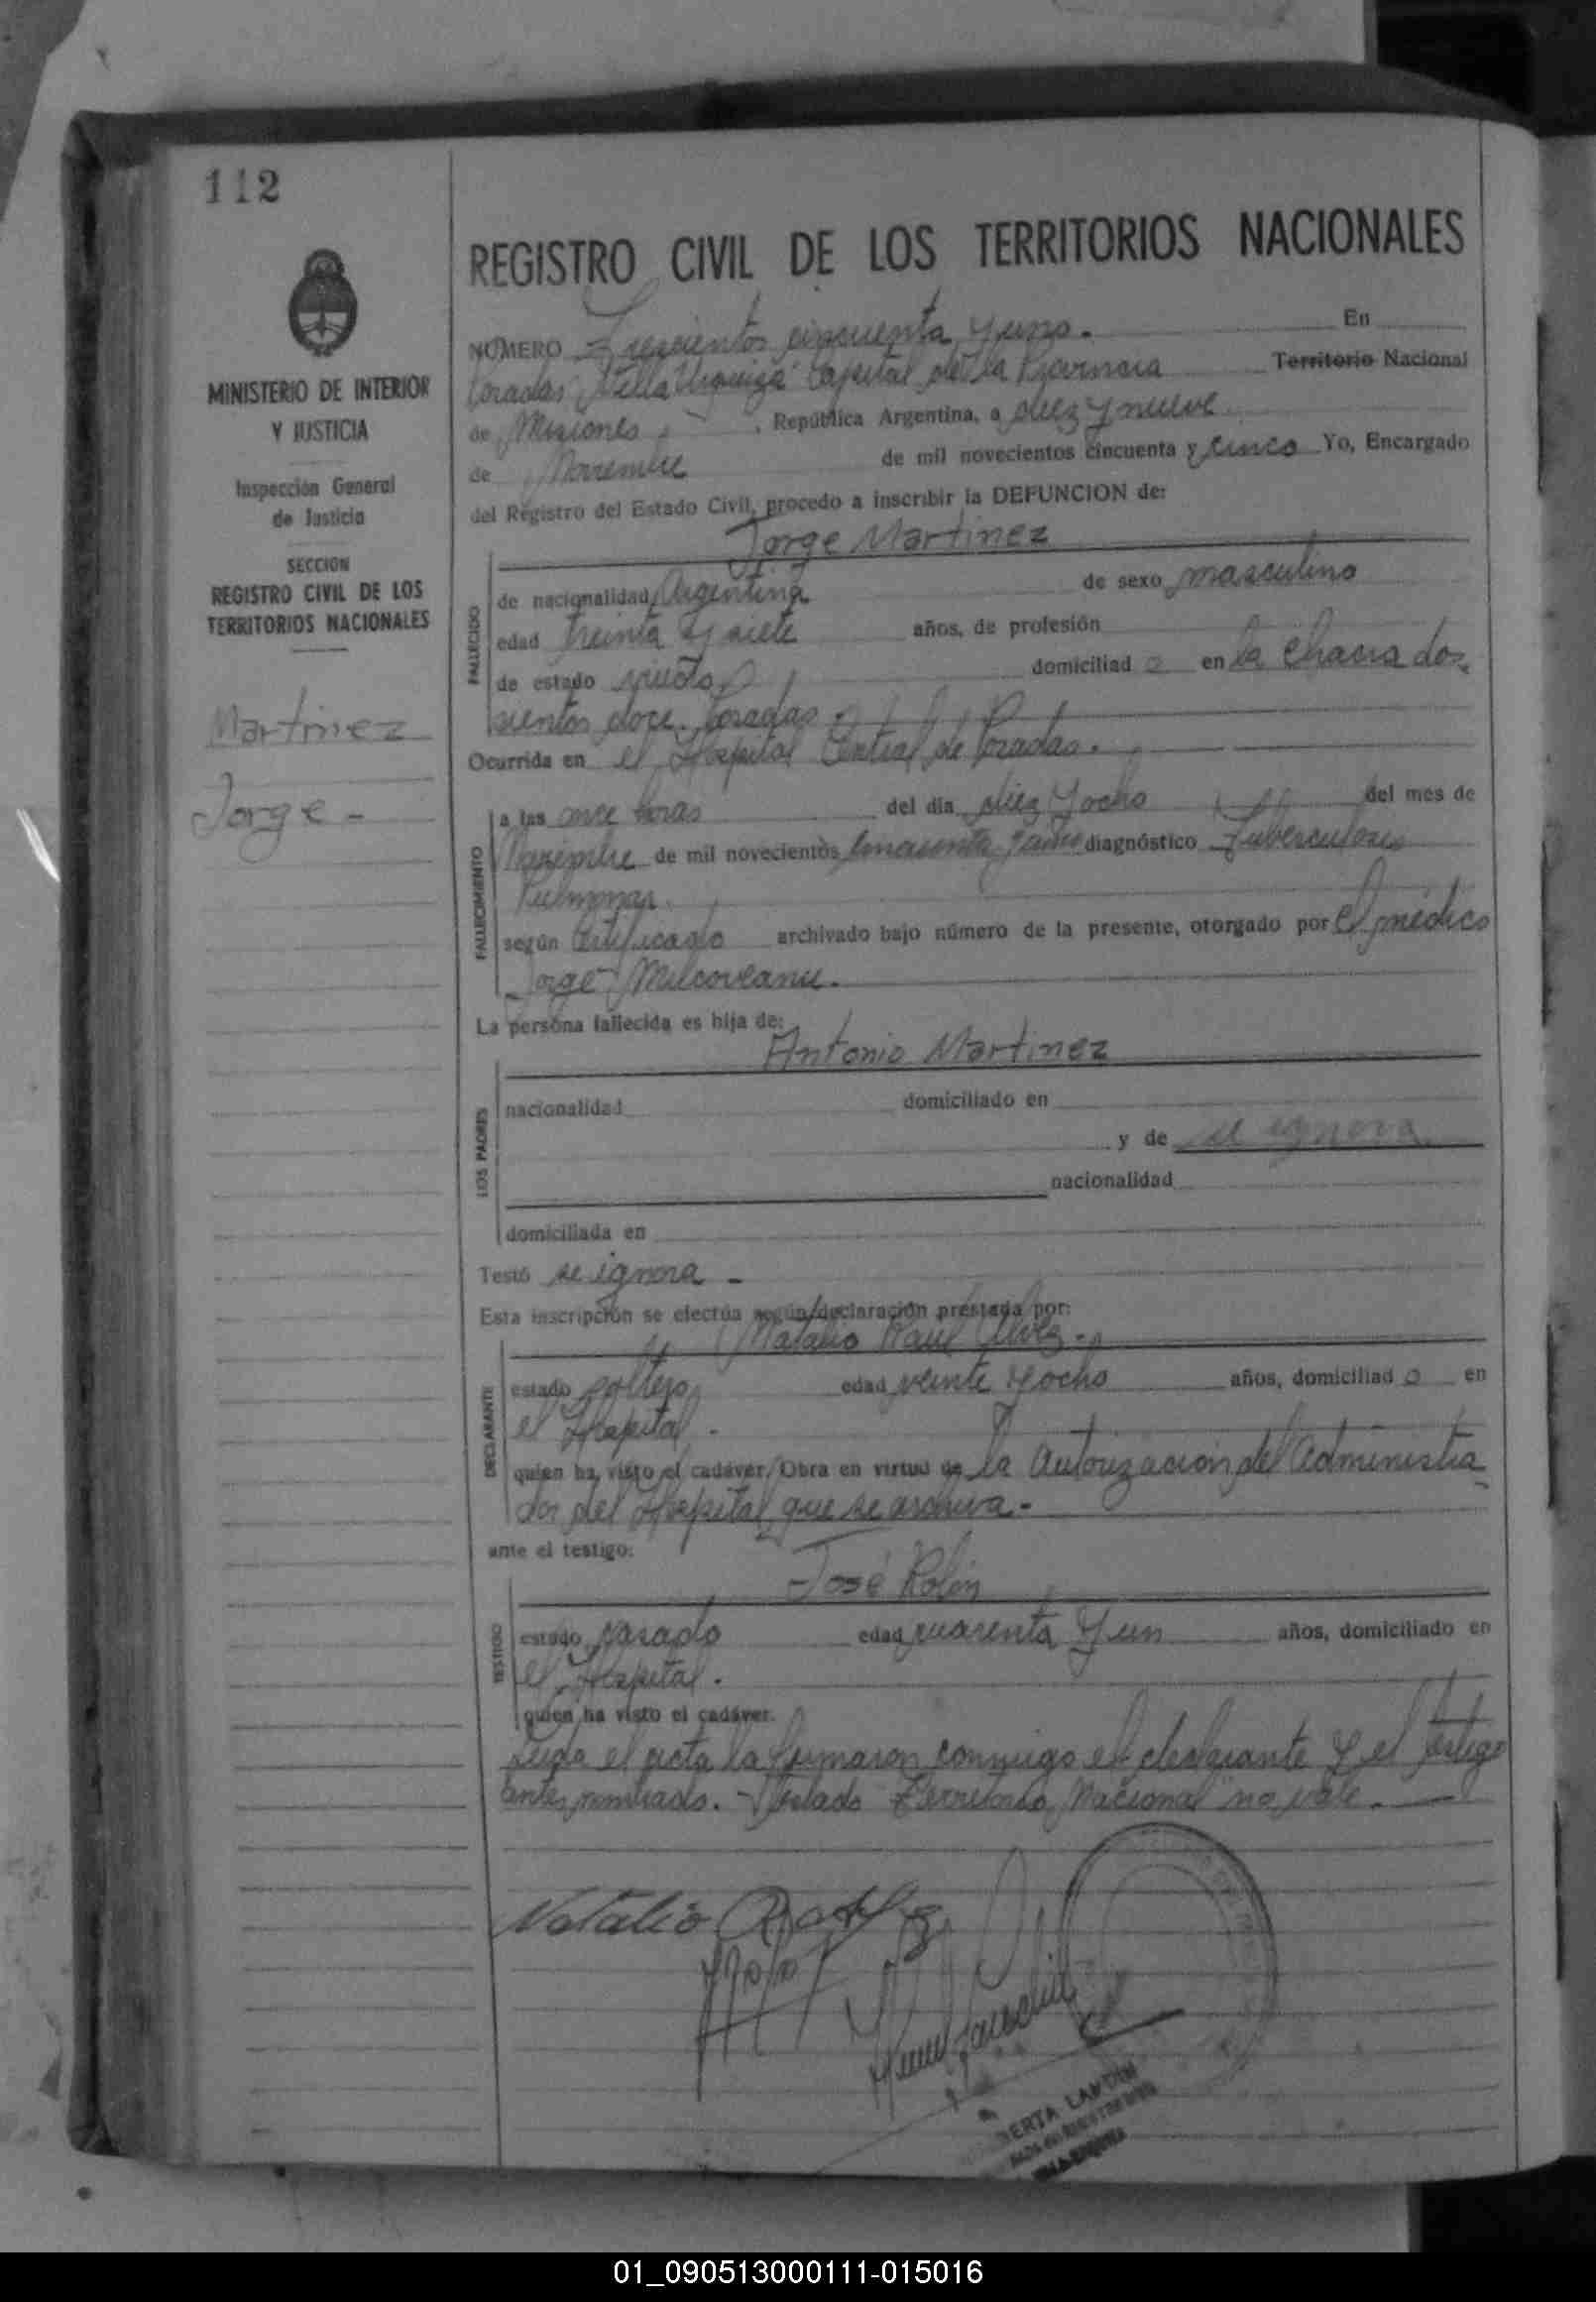 112
MINISTERIO DE INTERIOR
Y JUSTICIA
Inspección General
de Justicia
SECCION
REGISTRO CIVIL DE LOS
TERRITORIOS NACIONALES
Martinez
Jorge -
REGISTRO CIVIL DE LOS TERRITORIOS NACIONALES
NÚMERO Trescientos cincuenta y uno. En
Posadas "Villa Urquiza" Capital de la Provincia Territorio Nacional
de Misiones, República Argentina, a diez y nueve
de Noviembre de mil novecientos cincuenta y cinco Yo, Encargado
del Registro del Estado Civil, procedo a inscribir la DEFUNCION de:
Jorge Martinez
FALLECIDO
de nacionalidad Argentina de sexo masculino
edad treinta y siete años, de profesión
de estado viudo domiciliad o en la chacra dos
cientos doce. Posadas
Ocurrida en el Hospital Central de Posadas.
FALLECIMIENTO
a las once horas del día diez y ocho del mes de
Noviembre de mil novecientos cincuenta y cinco diagnóstico Tuberculosis
Pulmonar.
según certificado archivado bajo número de la presente, otorgado por el médico
Jorge Milcoveanu.
La persona fallecida es hija de:
Antonio Martinez
LOS PADRES
nacionalidad domiciliado en
y de se ignora
nacionalidad
domiciliada en
Testó se ignora -
Esta inscripción se efectúa según declaración prestada por:
Natalio Raul
DECLARANTE
estado soltero edad veinte y ocho años, domiciliad o en
el Hospital.
quien ha visto el cadáver. Obra en virtud de la Autorización del Administra
dor del Hospital que se archiva.-
ante el testigo:
José Rolón
TESTIGO
estado casado edad cuarenta y un años, domiciliado en
el Hospital.
quien ha visto el cadáver.
Leida el acta la firmaron conmigo el declarante y el testigo
antes nombrado. - Testado "Territorio Nacional" no vale.
Natalio
01_090513000111-015016